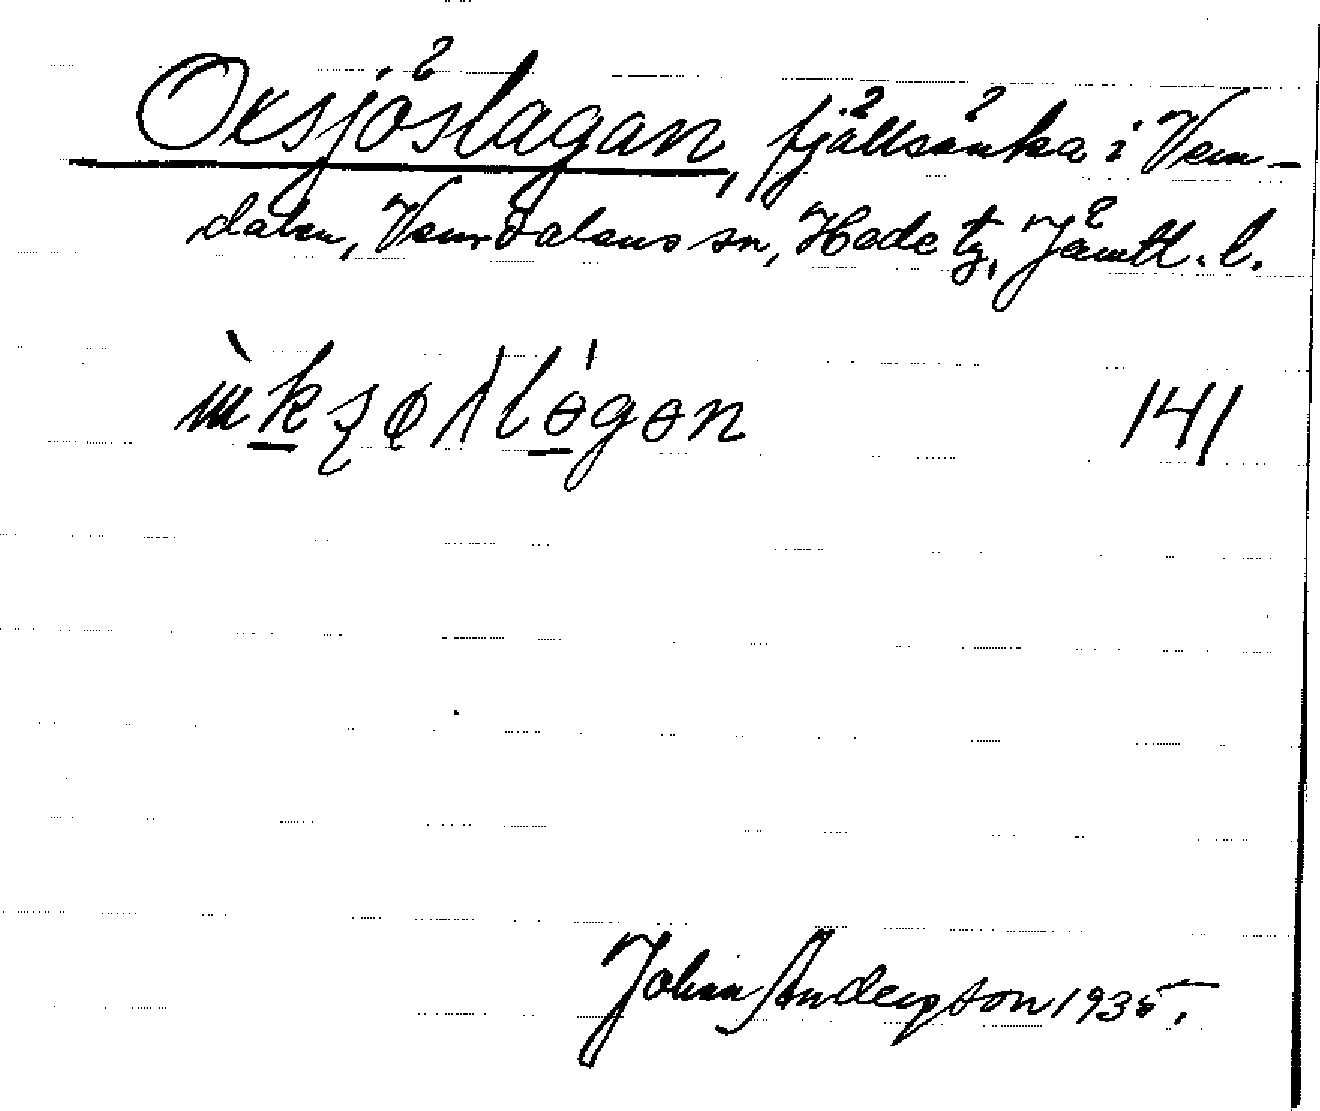 Oxsjöslagan, fjällsänka i Vem-
dalen, Vemdalens sn, Hede tg, Jämtl. l.
141
Johan Anderson 1935.